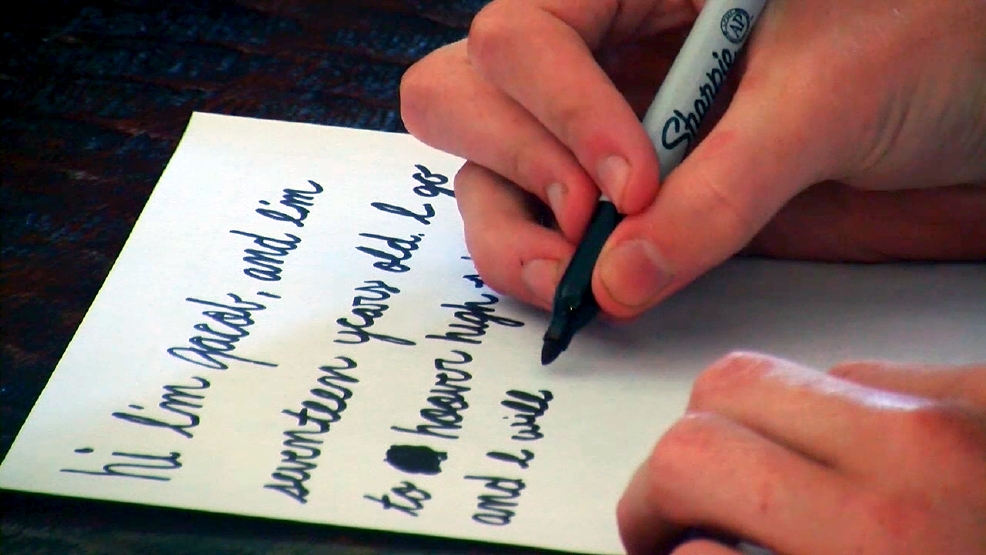 hi I'm jacob, and I'm
seventeen years old. I go
to hoover high
and I will
Sharpie
AP